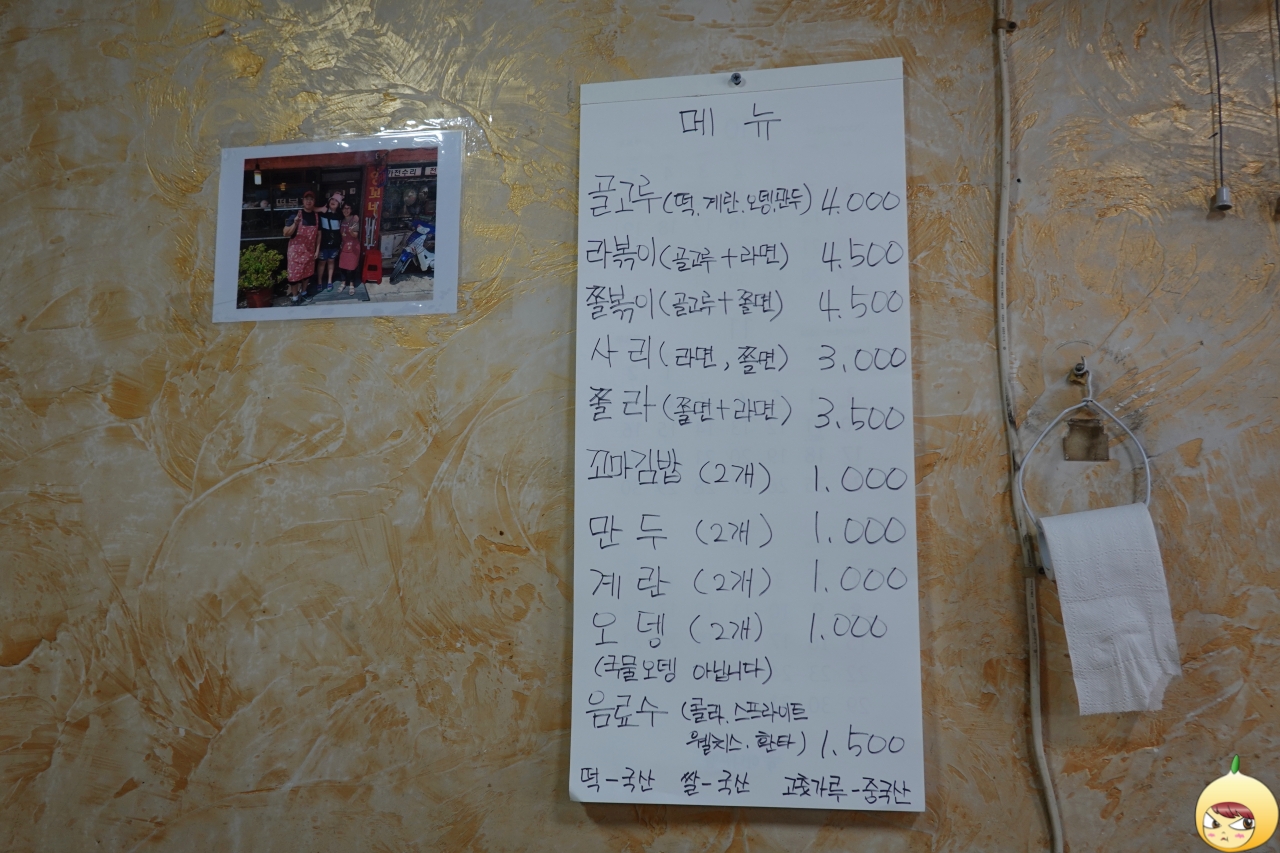 메 뉴
골고루 (떡, 계란, 오뎅, 만두) 4.000
라볶이 (골고루 + 라면) 4.500
쫄볶이 (골고루 + 쫄면) 4.500
사 리 (라면, 쫄면) 3,000
쫄 라 (쫄면 + 라면) 3,500
꼬마김밥 (2개) 1.000
만 두 (2개) 1.000
계 란 (2개) 1.000
오 뎅 (2개) 1.000
(국물오뎅 아닙니다)
음료수 (콜라, 스프라이트
웰치스. 환타) 1,500
떡-국산 쌀-국산 고춧가루-중국산